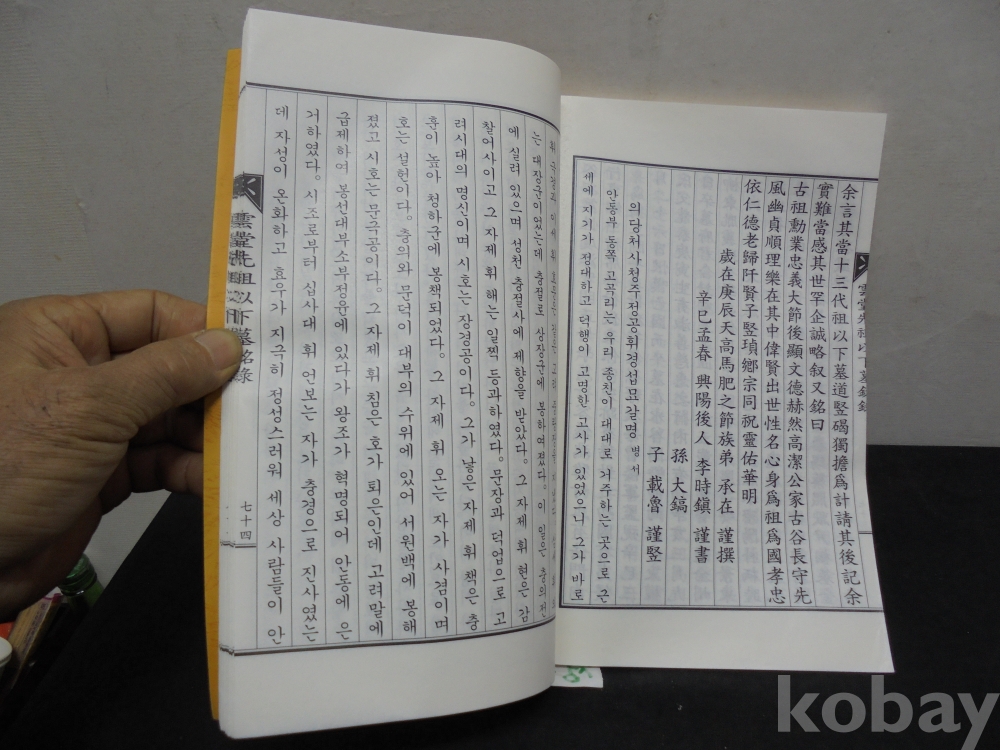 余言其當十三代祖以下墓道竪碣獨擔爲計請其後記余
實難當感其世罕企誠略叙又銘曰
古祖勳業忠義大節後顯文德赫然高潔公家古谷長守先
風幽貞順理樂在其中偉賢出世性名心身爲祖爲國孝忠
依仁德老歸阡賢子竪瑱鄉宗同祝靈佑華明
歲在庚辰天高馬肥之節族弟 承在 謹撰
辛巳孟春 興陽後人 李時鎭 謹書
孫 大鎬
子 載魯 謹竪
의당처사청주정공휘경섭묘갈명 병서
안동부 동쪽 고곡리는 우리 종친이 대대로 거주하는 곳으로 근
세에 지기가 정대하고 덕행이 고명한 고사가 있었으니 그가 바로
는 대장군이었는데 충절로 상장군에 봉하여졌다. 이 일은
에 실려 있으며 성천 충절사에 제향을 받았다. 그 자제 휘 현은 감
찰어사이고 그 자제 휘 해는 일찍 등과하였다. 문장과 덕업으로 고
려시대의 명신이며 시호는 장경공이다. 그가 낳은 자제 휘 책은 충
훈이 높아 청하군에 봉책되었다. 그 자제 휘 오는 자가 사겸이며
호는 설헌이다. 충의와 문덕이 대부의 수위에 있어 서원백에 봉해
졌고 시호는 문극공이다. 그 자제 휘 침은 호가 퇴은인데 고려말에
급제하여 봉선대부소부정윤에 있다가 왕조가 혁명되어 안동에 은
거하였다. 시조로부터 십사대 휘 언보는 자가 충경으로 진사였는
데 자성이 온화하고 효우가 지극히 정성스러워 세상 사람들이 안
雲堂先祖以下墓銘錄
七十四
kobay